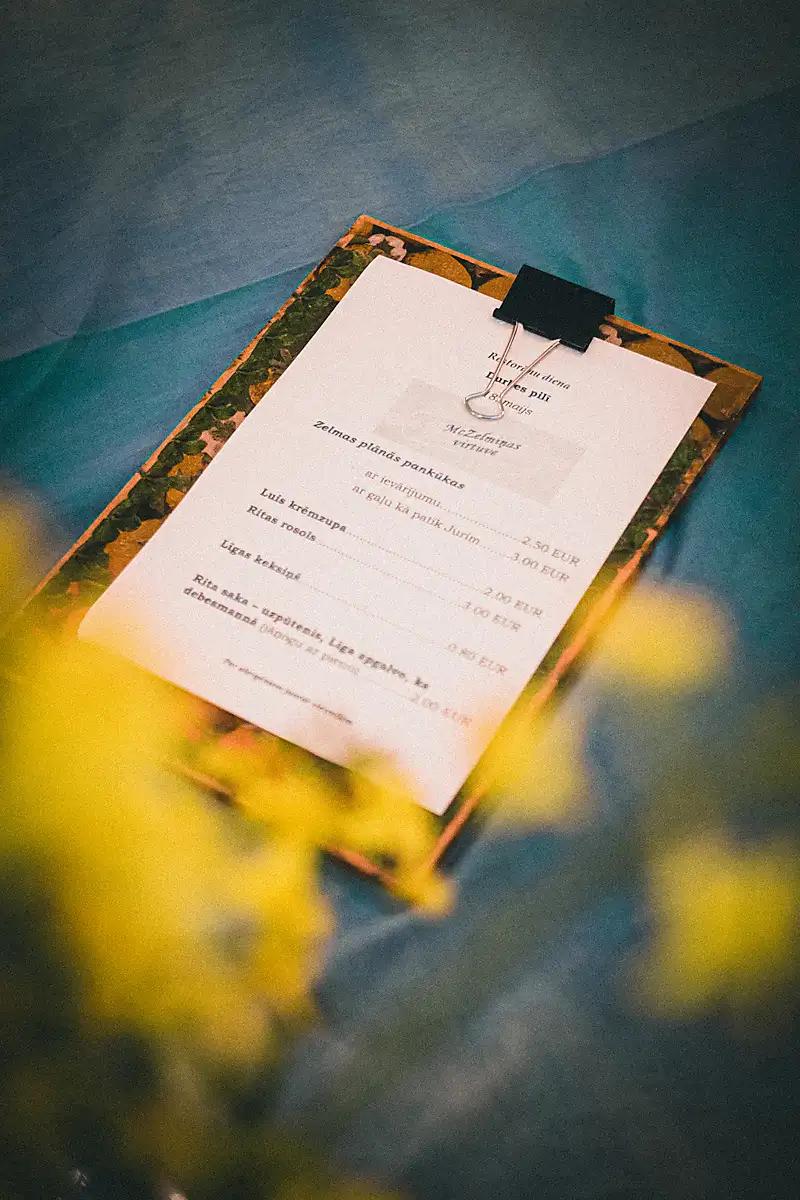 Restorānu dienā
Durbes pilī
8. maijs
McZelmiņas
virtuvē
Zelmas plānās pankūkas
ar ievārījumu 2.50 EUR
ar gaļu kā patīk Jurim 3.00 EUR
Luīs krēmzupa 2.00 EUR
Ritas rosols 3.00 EUR
Līgas keksiņš 0.80 EUR
Rita saka – uzpūtenis, Līga apgalvo, ka
debesmannā ar pienu 2.00 EUR